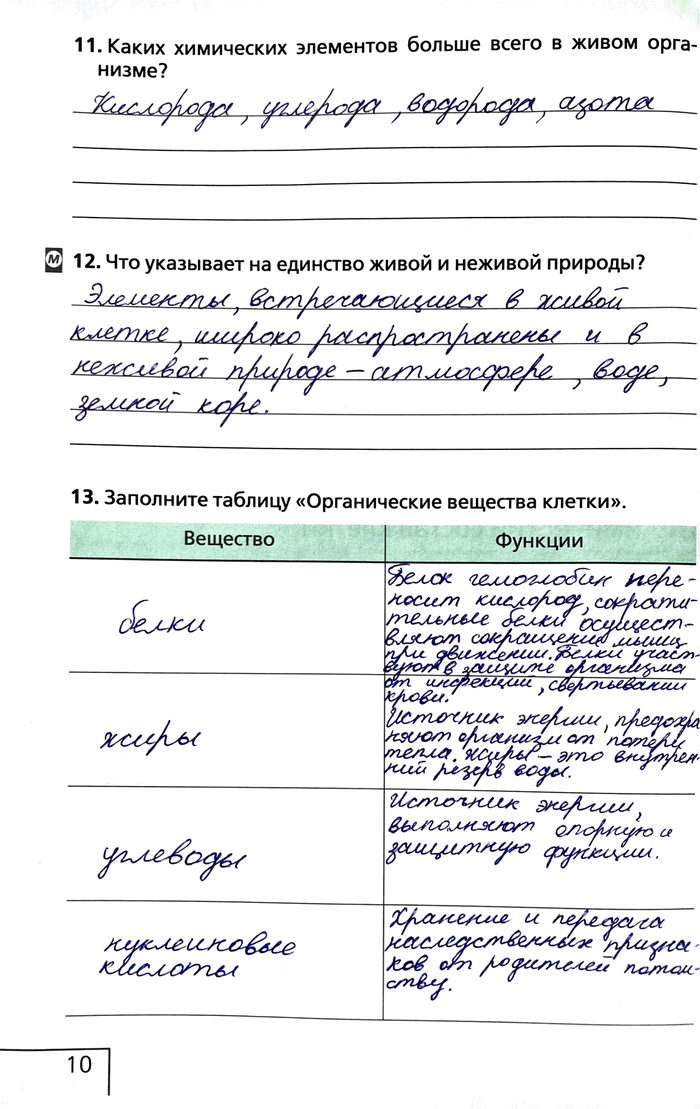 11. Каких химических элементов больше всего в живом орга-
низме?
Кислорода, углерода, водорода, азота
М 12. Что указывает на единство живой и неживой природы?
Элементы, встречающиеся в живой
клетке, широко распространены и в
неживой природе – атмосфере, воде,
земной коре.
13. Заполните таблицу «Органические вещества клетки».
Вещество Функции
белки
Белок гемоглобин пере-
носит кислород, сократи-
тельные белки осущест-
вляют сокращение мышц
при движении. Белки участ-
вуют в защите организма
от инфекций, свертывании
крови.
жиры
Источник энергии, предохра
няют организм от потери
тепла. Жиры – это внутрен-
ний резерв воды.
углеводы
Источник энергии,
выполняют опорную и
защитную функции.
нуклеиновые
кислоты
Хранение и передача
наследственных призна-
ков от родителей потом-
ству.
10